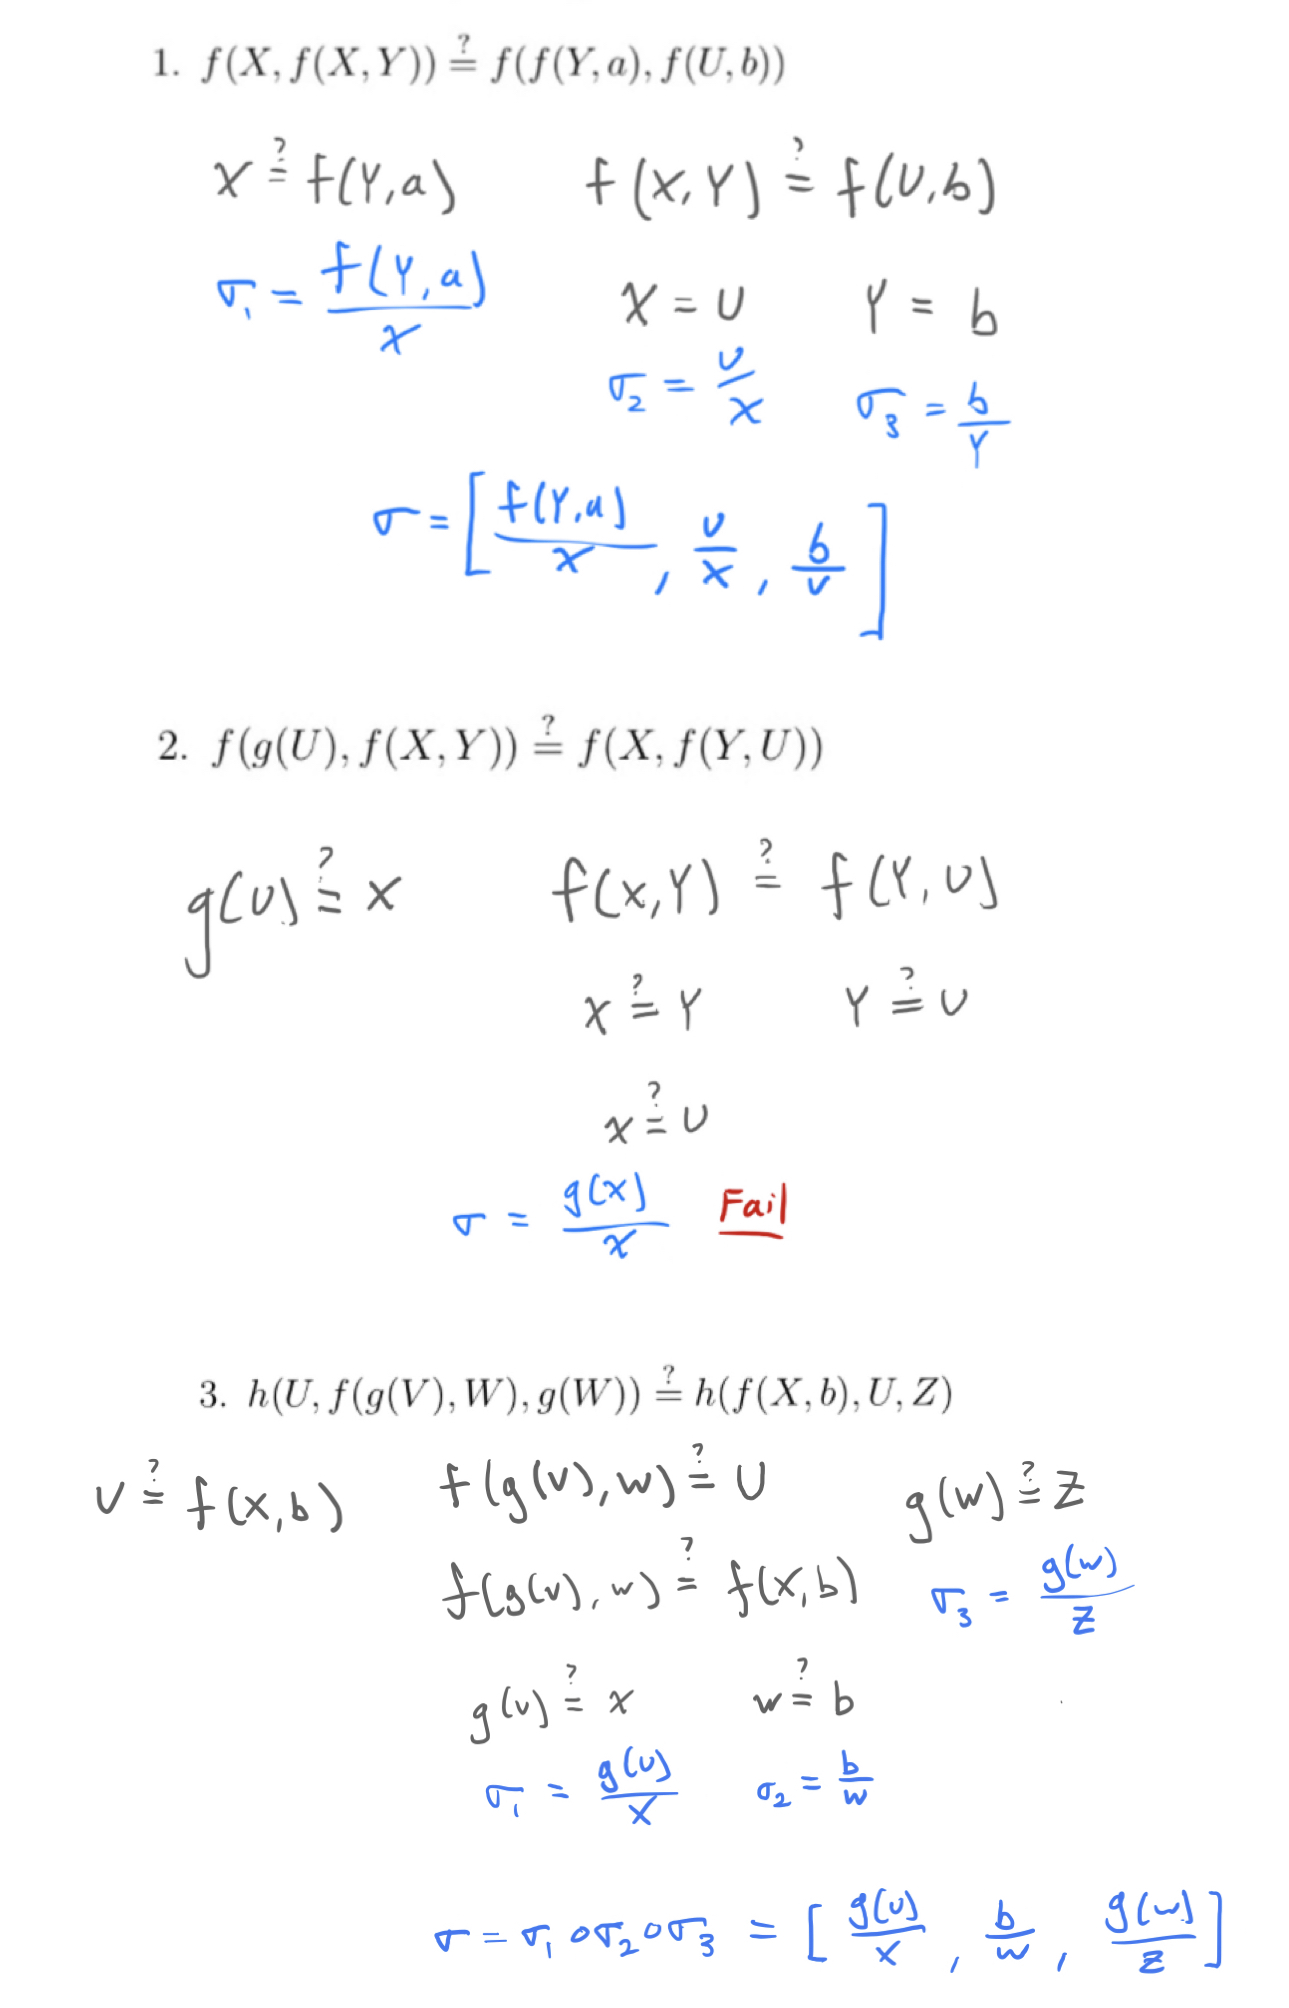 1. f(X, f(X, Y)) ≟ f(f(Y, a), f(U, b))
X ≟ f(Y,a)    f(X,Y) ≟ f(U,b)
σ₁ = f(Y,a)/X    X = U    Y = b
σ₂ = U/X    σ₃ = b/Y
σ = [f(Y,a)/X, U/X, b/U]
2. f(g(U), f(X, Y)) ≟ f(X, f(Y, U))
g(U) ≟ X    f(X,Y) ≟ f(Y,U)
X ≟ Y    Y ≟ U
X ≟ U
σ = g(X)/X    Fail
3. h(U, f(g(V), W), g(W)) ≟ h(f(X, b), U, Z)
U ≟ f(X,b)    f(g(V),W) ≟ U    g(W) ≟ Z
f(g(V),W) ≟ f(X,b)    σ₃ = g(W)/Z
g(V) ≟ X    W ≟ b
σ₁ = g(U)/X    σ₂ = b/W
σ = σ₁ o σ₂ o σ₃ = [g(U)/X, b/W, g(W)/Z]